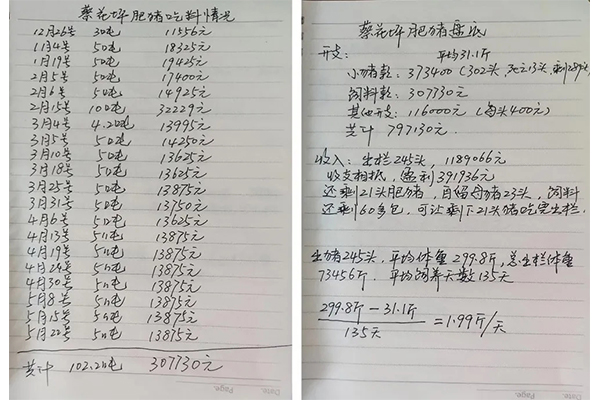 蔡花坪肥猪吃料情况
12月26号 3.0吨 11556元
1月4号 5.0吨 18325元
1月19号 5.0吨 19425元
2月5号 5.0吨 17400元
2月6号 5.0吨 14925元
2月15号 10.0吨 32229元
3月4号 4.20吨 13995元
3月5号 5.0吨 14250元
3月10号 5.0吨 13625元
3月18号 5.0吨 13625元
3月25号 5.0吨 13875元
3月31号 5.0吨 13750元
4月6号 5.0吨 13625元
4月13号 5.0吨 13875元
4月19号 5.0吨 13875元
4月24号 5.0吨 13875元
4月30号 5.0吨 13875元
5月8号 5.0吨 13875元
5月15号 5.0吨 13875元
5月22号 5.0吨 13875元
共计 102.20吨 307730元
Date. Page.
蔡花坪肥猪盘底
开支: 平均31.1斤
小猪款: 373400 (302头, 死亡13头, 剩289头)
饲料款: 307730元
其他开支: 116000元 (每头400元)
共计 797130元.
收入: 出栏245头, 1189066元
收支相抵, 盈利391936元
还剩21头肥猪, 自留母猪23头, 饲料
还剩60多包, 可让剩下21头猪吃完出栏.
出猪245头, 平均体重299.8斤, 总出栏体重
73456斤. 平均饲养天数135天
299.8斤-31.1斤
135天
=1.99斤/天
Date. Page.